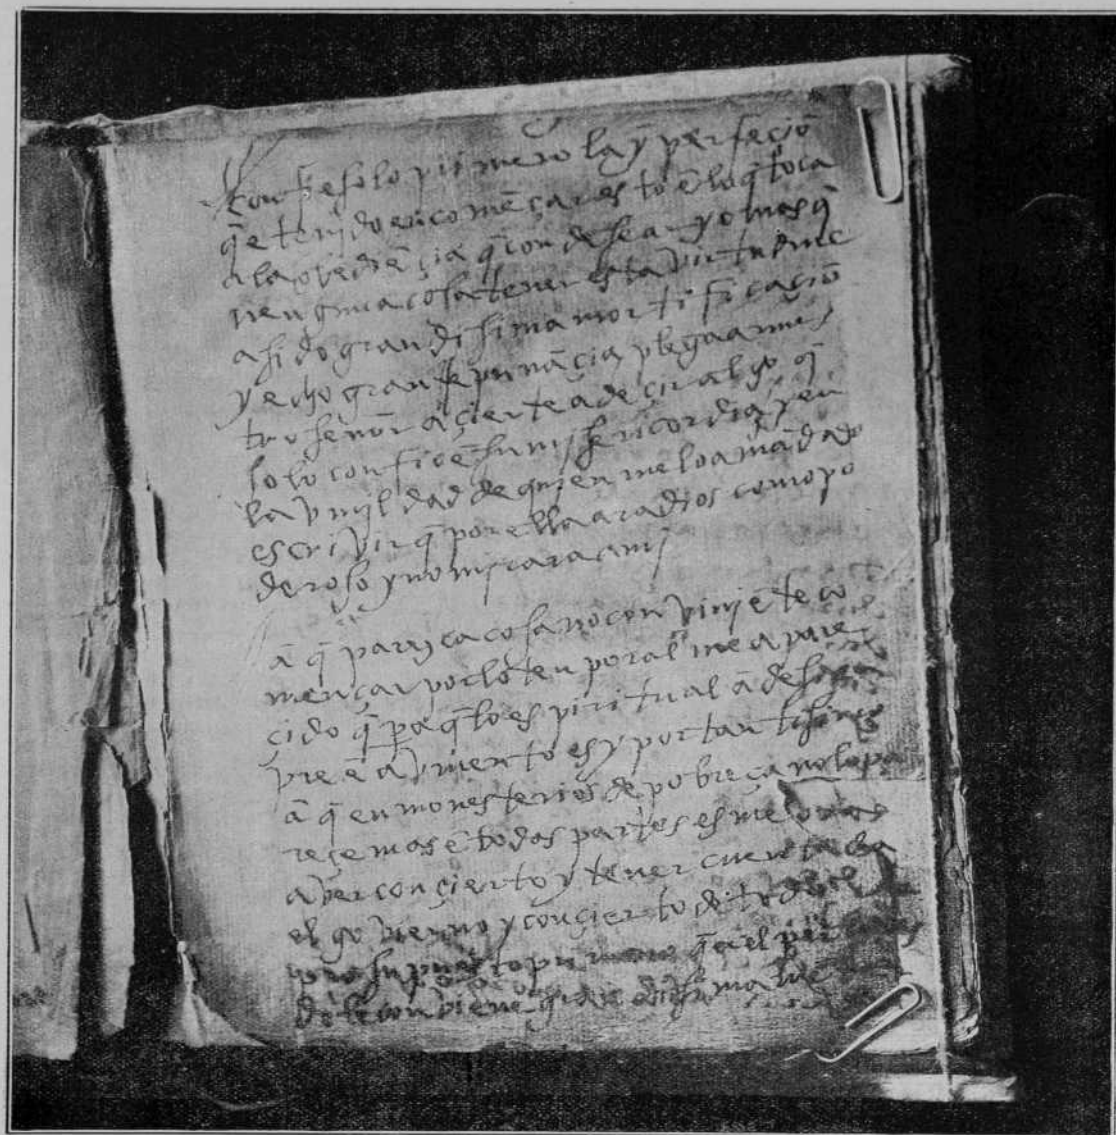 confieso lo primero la ynperfeçiō
q̄ e tenjdo en comēçar esto ē lo q̄ toca
a la obediēçia q̄ con desear yo mas q̄
nenguna cosa tener esta virtud me
a sido grandisima mortificaçiō
y echo gran repunāçia plega a nues
tro señor açierte a deçir algo q̄
solo confio ē su mjsericordia y en
la vmjldad de qujen me lo a mādado
escrivir q̄ por ella ara dios como po
deroso y no mjrara a mj
āq̄ pareçca cosa no convinjēte co
mençar por lo tenporal me a pare
çido q̄ pa q̄ lo espiritual āde sien
pre ē avmento es ynportantisimo
āq̄ en monesterios de pobreça no lo pa
reçe mas ē todas partes es menester
aver conçierto y tener cuenta cō
el govierno y conçierto de todo
presupuesto primero q̄ al
le conviene grandisima